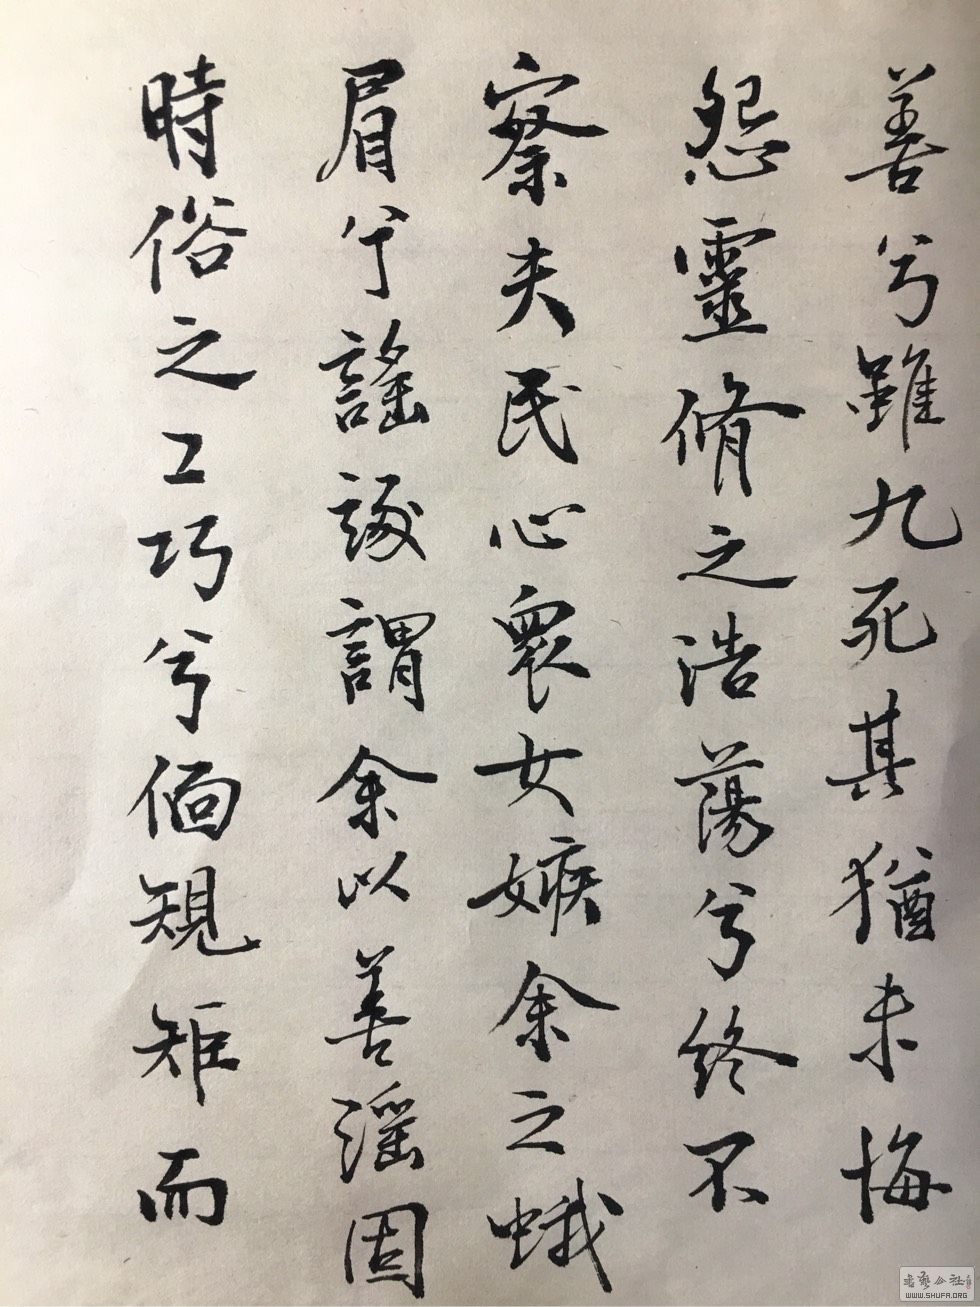 善兮雖九死其猶未悔
怨靈脩之浩蕩兮終不
察夫民心衆女嫉余之蛾
眉兮謠諑謂余以善淫固
時俗之工巧兮偭規矩而
書藝公社
WWW.SHUFA.ORG